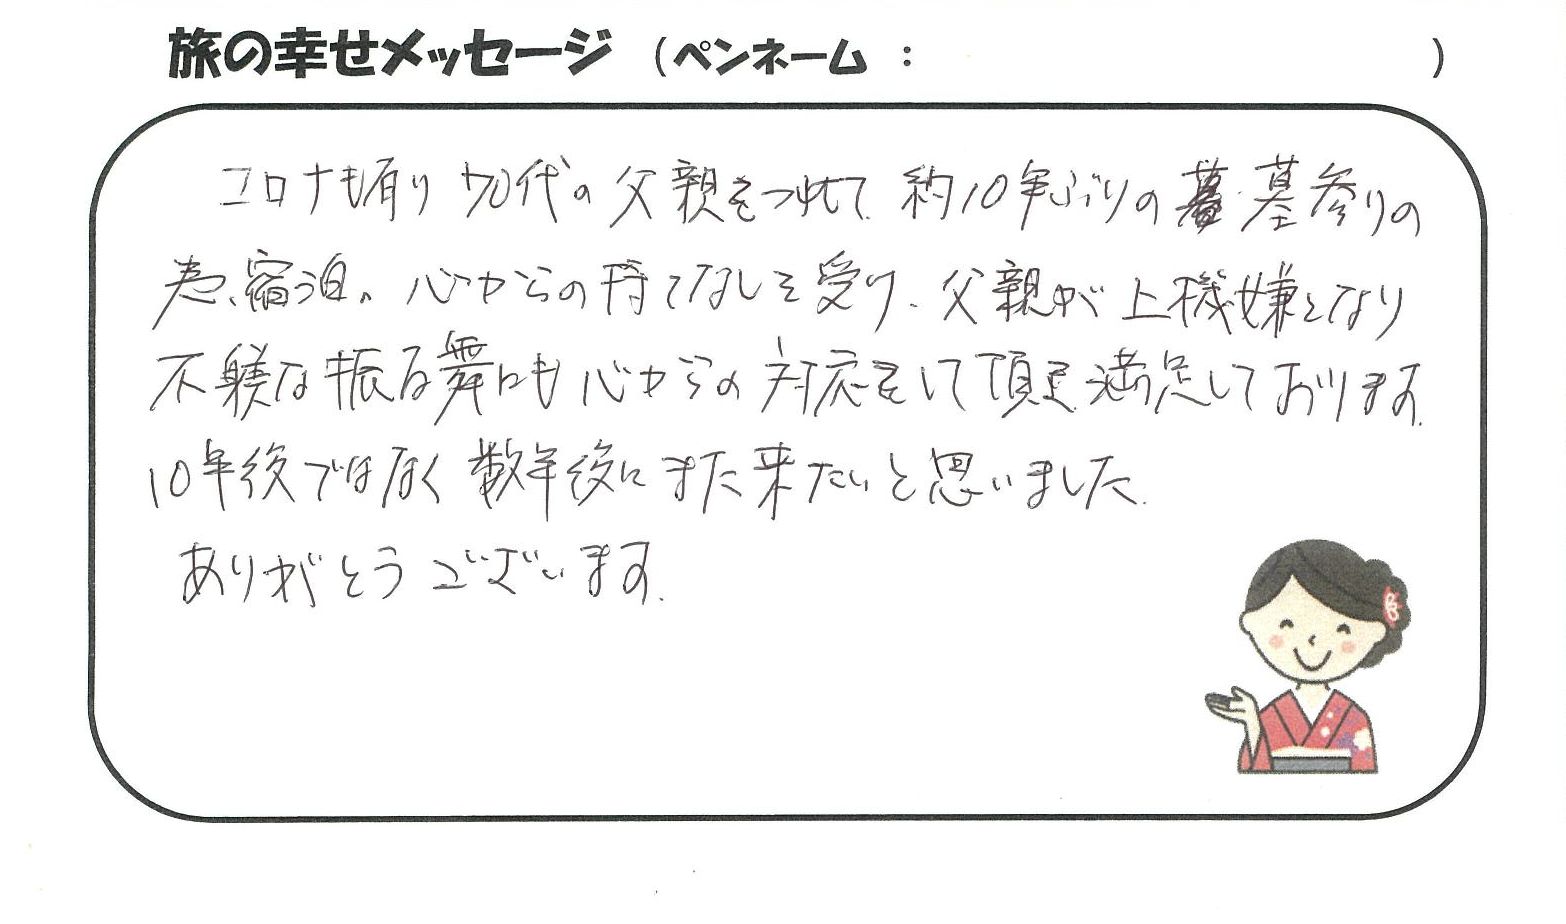 旅の幸せメッセージ (ペンネーム : )
コロナも有り 70代の父親をつれて 約10年ぶりの 墓参りの
為、宿泊。心からの持てなしを受け、父親が上機嫌となり
不躾な振る舞にも心からの対応をして頂き満足しております。
10年後ではなく数年後にまた来たいと思いました。
ありがとうございます。